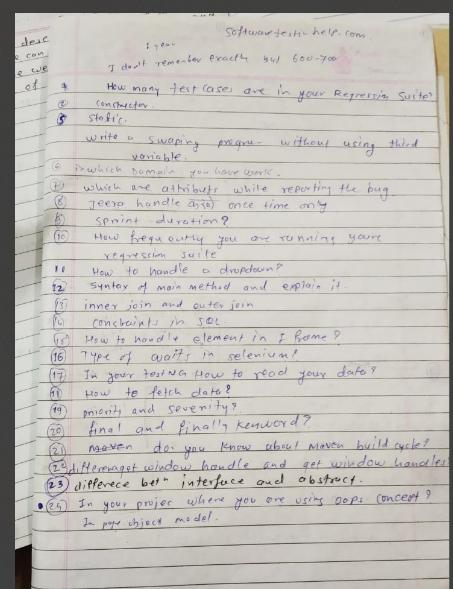 Softwaretestinhelp.com
desc
1 year
e can
I don't remember exactly but 600-700
e we
of
1 How many test cases are in your Regression Suite?
2 constructor.
5 static.
write a swaping progra- without using third
variable.
6 in which Domain you have work.
7 which are attributs while reporting the bug.
8 Jeera handle once time only
9 sprint duration?
10 How frequently you are running youre
regression suite
11 How to handle a dropdown?
12 syntax of main method and explain it.
13 inner join and outer join
14 constraints in SQL
15 How to handle element in I frame?
16 Type of waits in selenium?
17 In your testNG How to read your data?
18 How to fetch data?
19 priority and severity?
20 final and finally keyword?
21 maven do you know about Maven build cycle?
22 differenaget window handle and get window handles
23 differece betn interface and abstract.
24 In your projec where you are using oops concept?
In page object model.